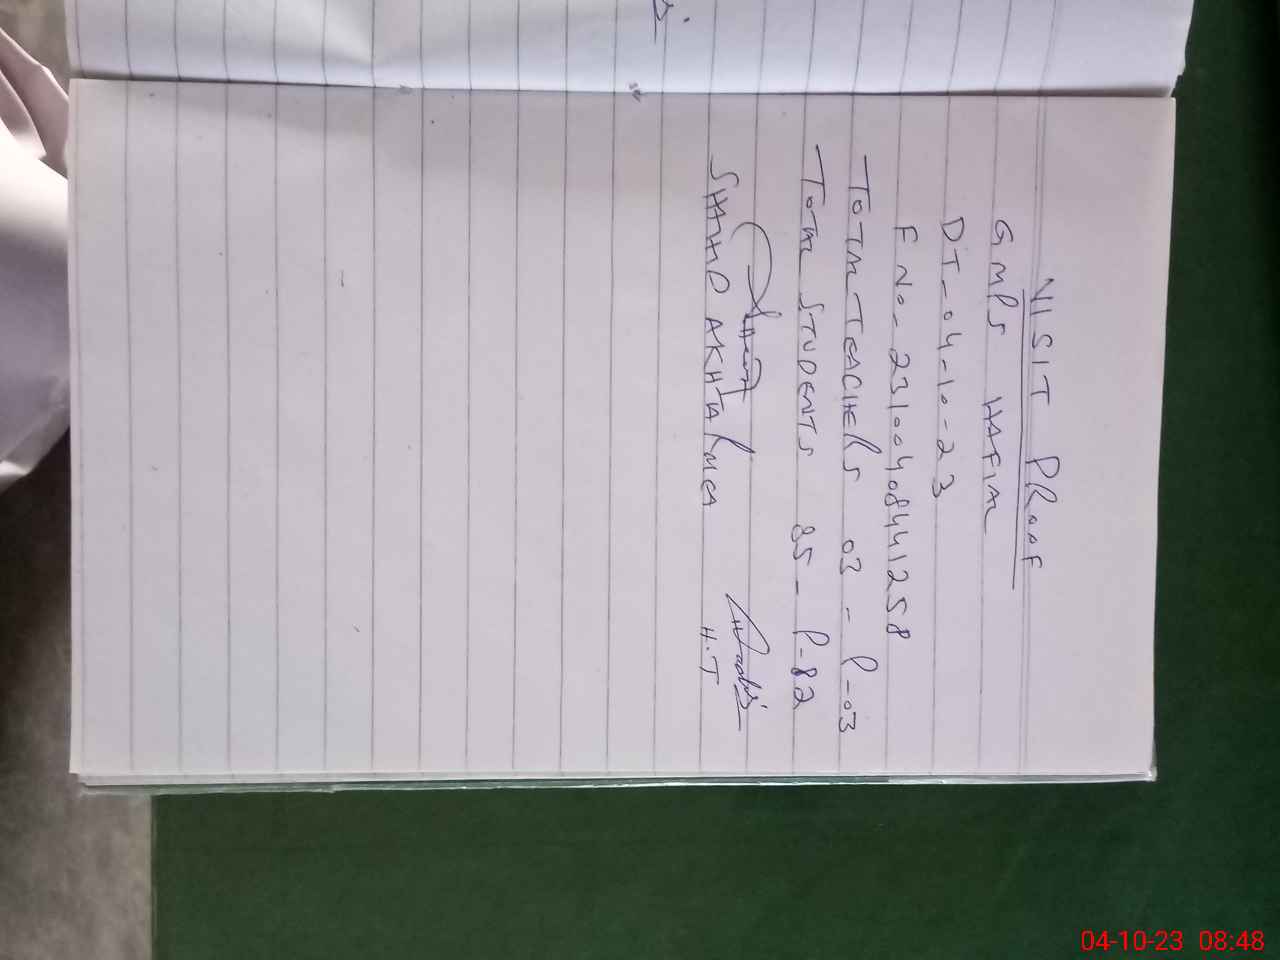 VISIT PROOF
GMPS HAFIAL
DT-04-10-23
F No- 23100408441258
TOTAL TEACHERS 03 - P-03
TOTAL STUDENTS 85 - P-82
SHAHID AKHTAR MEA H.T
04-10-23 08:48